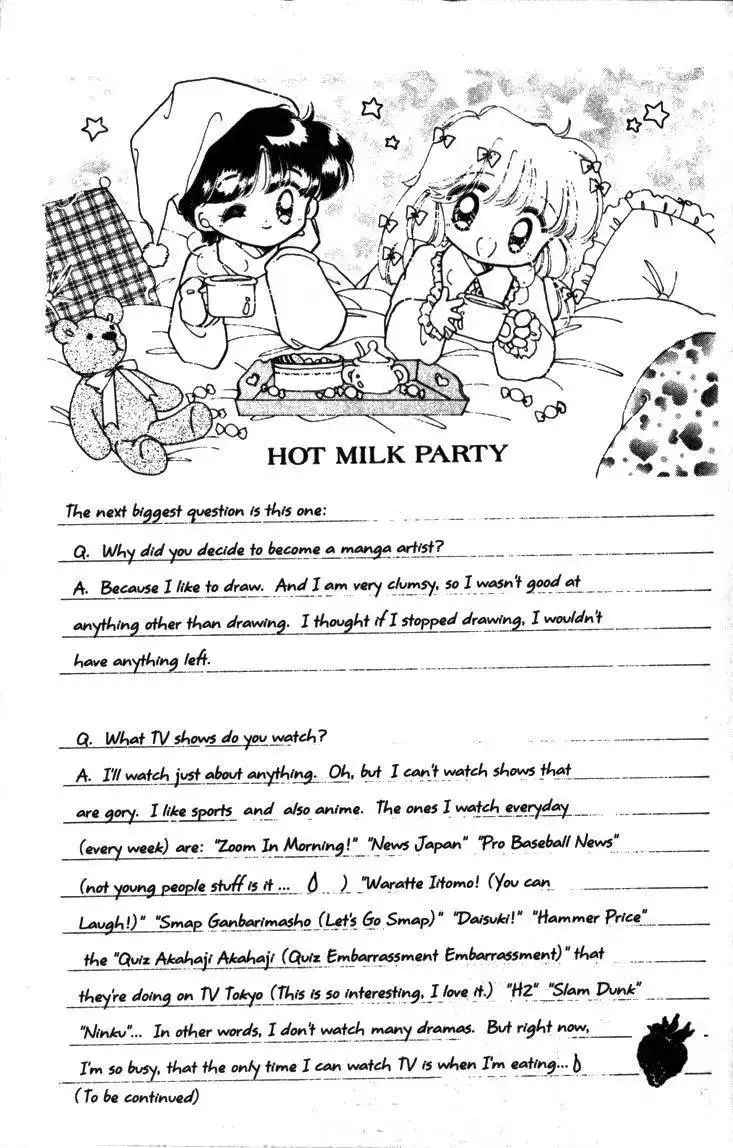 HOT MILK PARTY
The next biggest question is this one:
Q. Why did you decide to become a manga artist?
A. Because I like to draw. And I am very clumsy, so I wasn't good at
anything other than drawing. I thought if I stopped drawing, I wouldn't
have anything left.
Q. What TV shows do you watch?
A. I'll watch just about anything. Oh, but I can't watch shows that
are gory. I like sports and also anime. The ones I watch everyday
(every week) are: "Zoom In Morning!" "News Japan" "Pro Baseball News"
(not young people stuff is it... ) "Waratte Iitomo! (You can
Laugh!)" "Smap Ganbarimasho (Let's Go Smap)" "Daisuki!" "Hammer Price"
the "Quiz Akahaji Akahaji (Quiz Embarrassment Embarrassment)" that
they're doing on TV Tokyo (This is so interesting, I love it.) "H2" "Slam Dunk"
"Ninku"... In other words, I don't watch many dramas. But right now,
I'm so busy, that the only time I can watch TV is when I'm eating...
(To be continued)